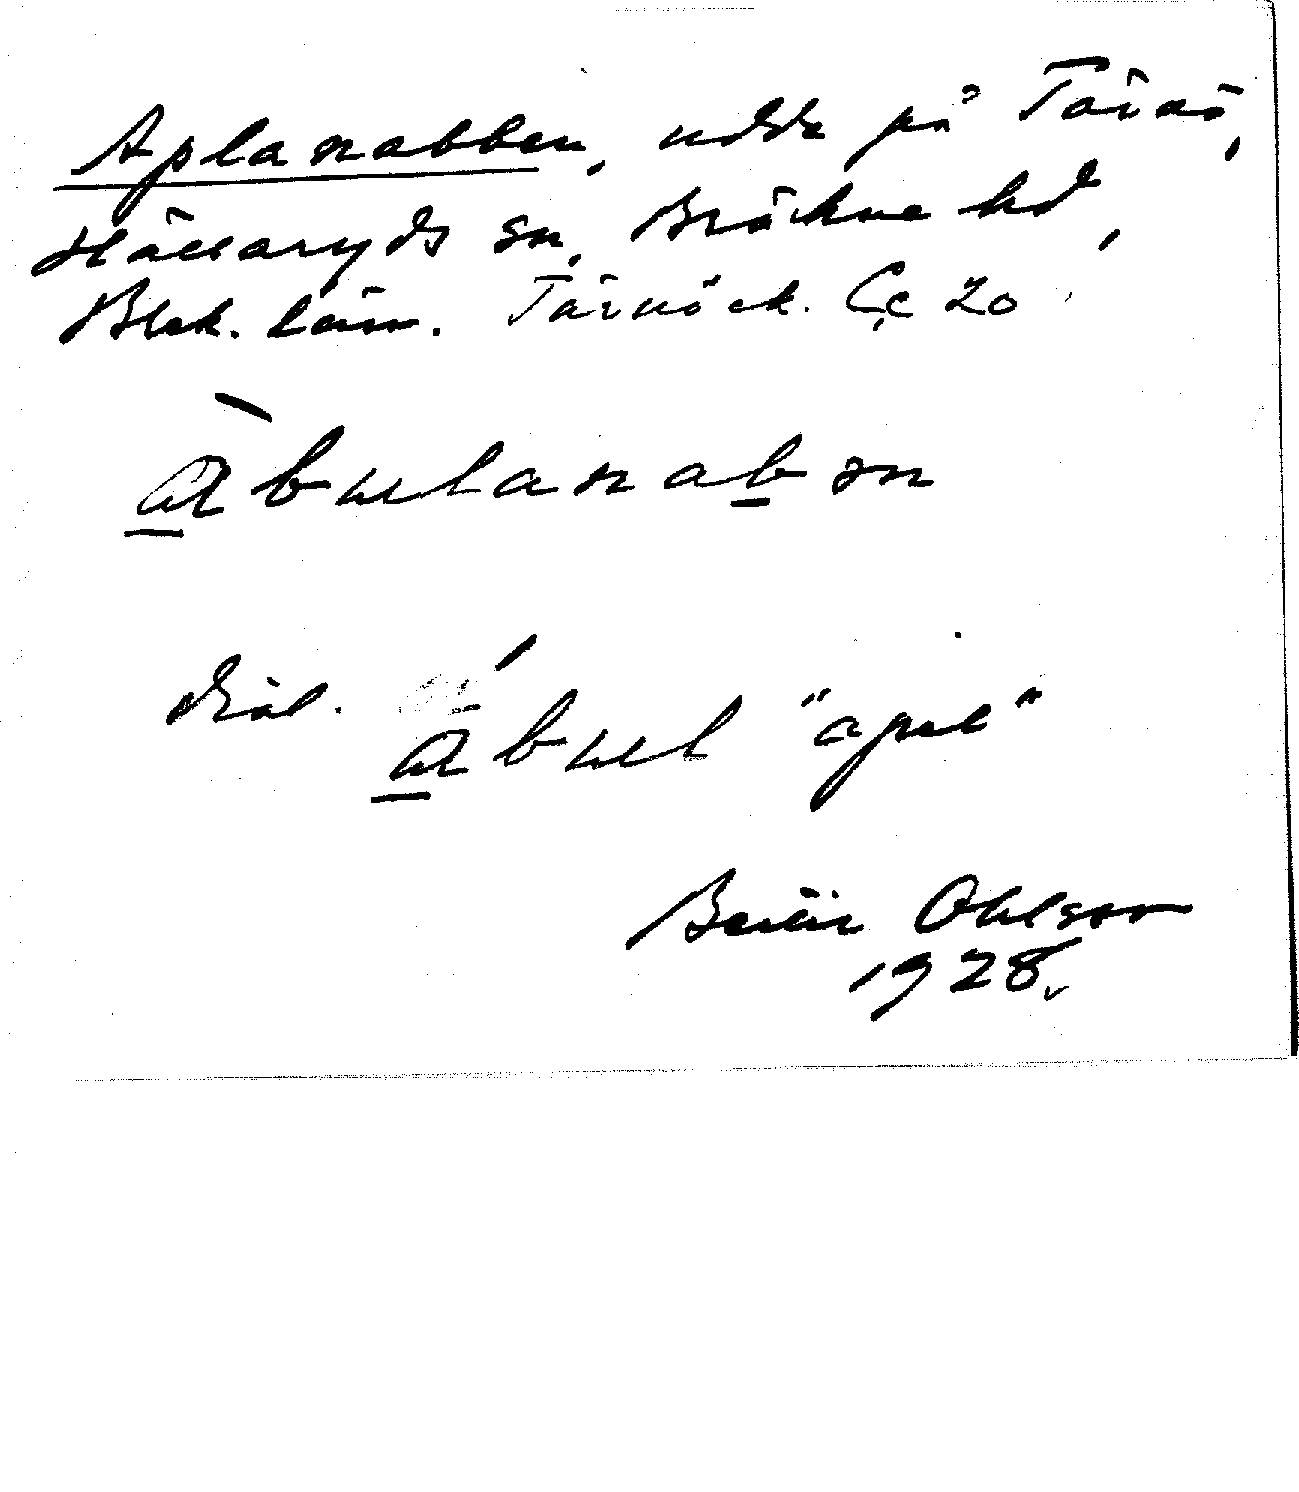 Aplanabben, udde på Tärnö,
Hällaryds sn, Bräkne hd,
Blek. län. Tärnö ek. Cc 20
àbulanabən
dial. ábul "apel"
Bertil Ohlson
1928.